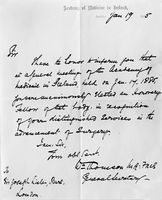 Academy of Medicine in Ireland,
Jan 19
Sir
I have to honor to inform you that
at a general meeting of the Academy of
Medicine in Ireland, held on Jan 17, 1885,
you were unanimously elected an Honorary
Fellow of that Body, in recognition
of your distinguished services in the
advancement of Surgery.
I am Sir,
Your obt Servt
W Thomson M.A. F.R.C.S.
General Secretary
To
Sir Joseph Lister, Bart.
London